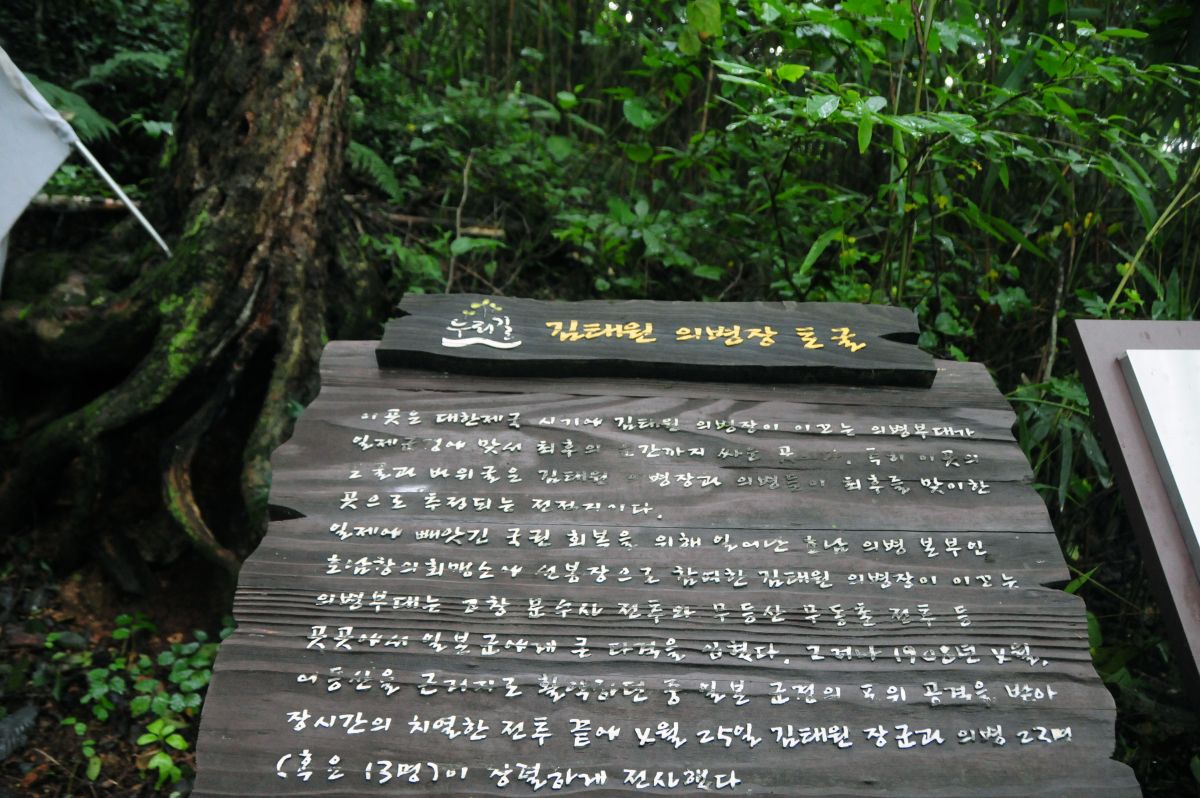 누리길
김태원 의병장 토굴
이 곳은 대한제국 시기에 김태원 의병장이 이끄는 의병부대가
일제군경에 맞서 최후의 순간까지 싸운 곳이다. 특히 이곳의
토굴과 바위굴은 김태원 의병장과 의병들이 최후를 맞이한
곳으로 추정되는 전적지이다.
일제에 빼앗긴 국권 회복을 위해 일어난 호남 의병 본부인
호남창의회맹소에 선봉장으로 참여한 김태원 의병장이 이끄는
의병부대는 고창 문수산 전투와 무등산 무동촌 전투 등
곳곳에서 일본군에게 큰 타격을 입혔다. 그러나 1908년 4월,
어등산을 근거지로 활약하던 중 일본 군경의 포위 공격을 받아
장시간의 치열한 전투 끝에 4월 25일 김태원 장군과 의병 23명
(혹은 13명)이 장렬하게 전사했다